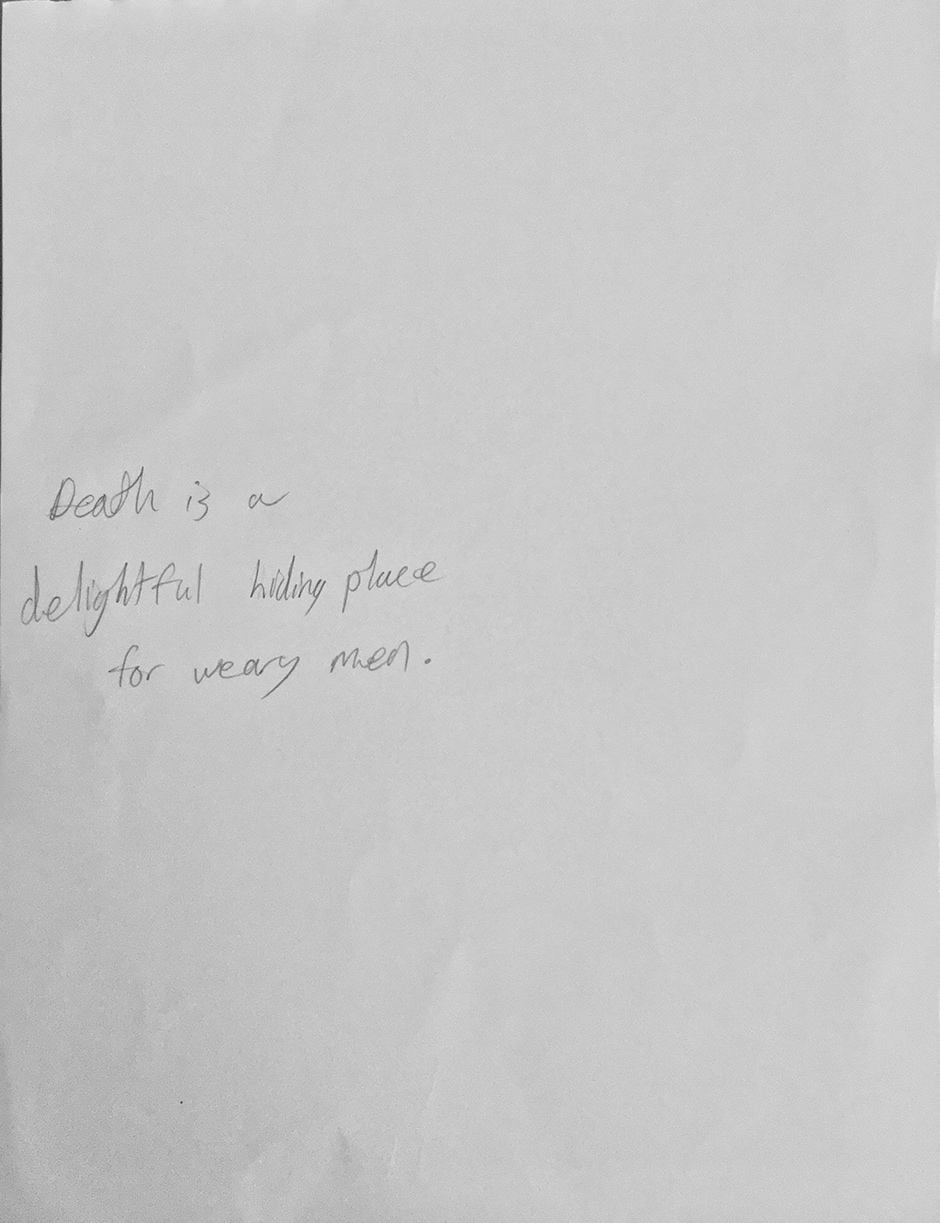 Death is a
delightful hiding place
for weary men.